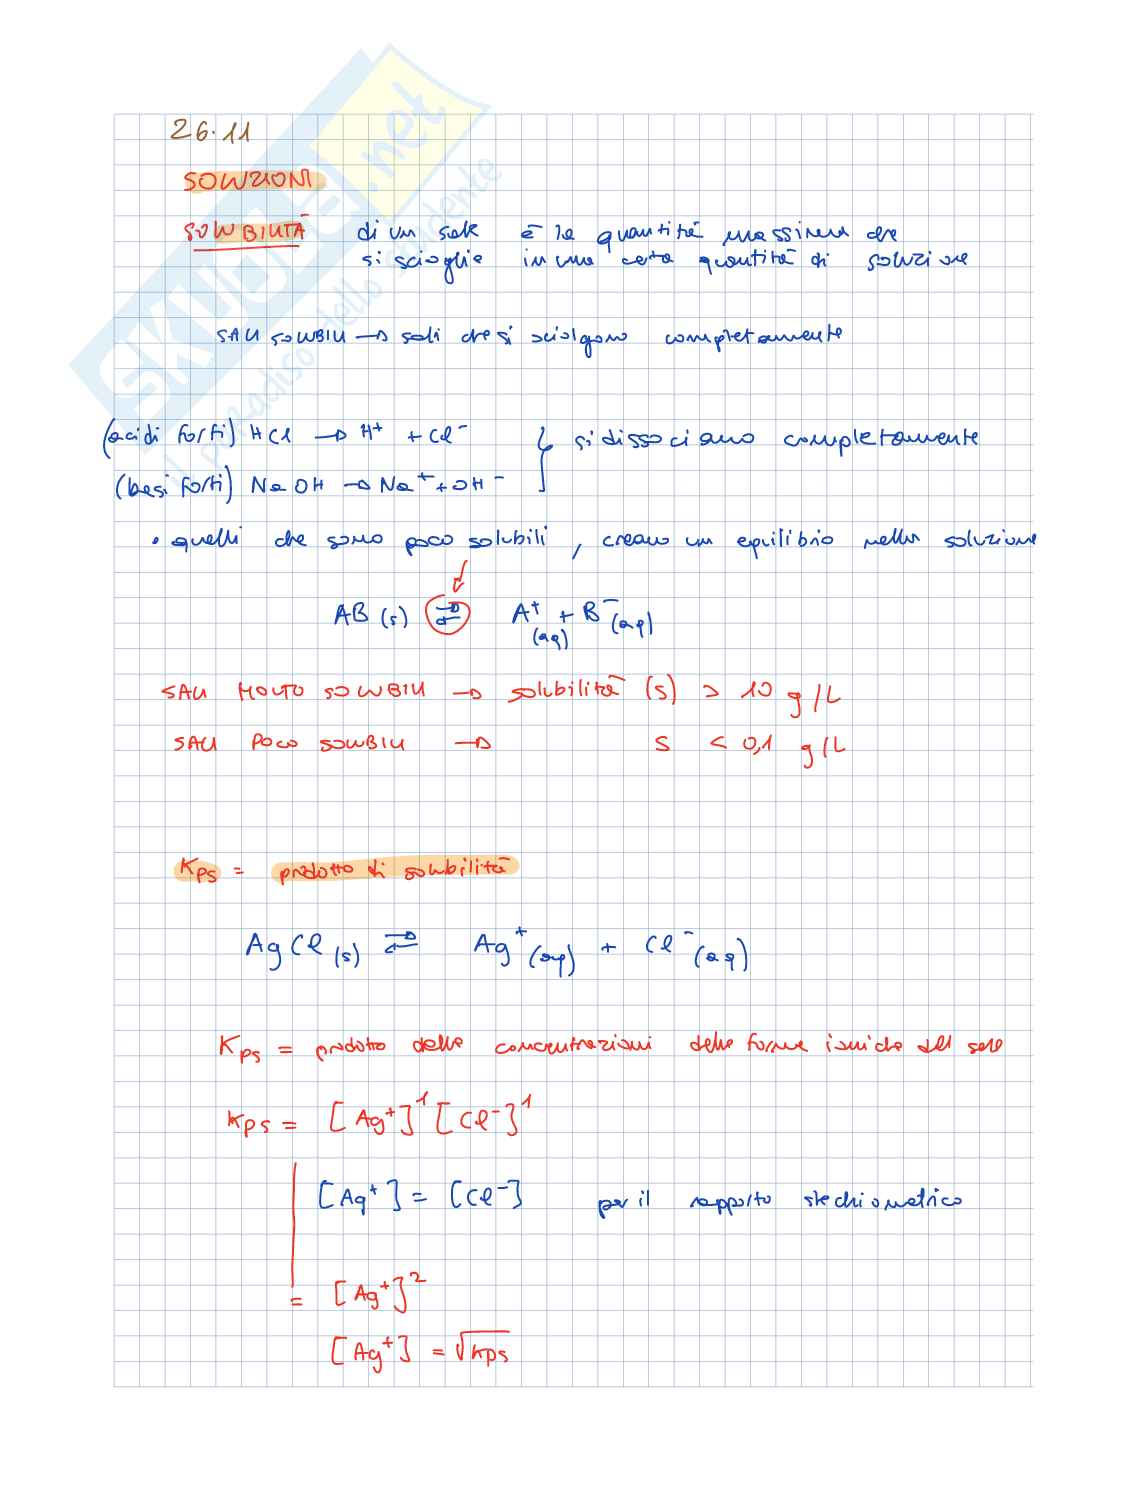 26.11
SOLUZIONI
SOLUBILITÀ di un sale è la quantità massima che
si scioglie in una certa quantità di soluzione
SALI SOLUBILI → sali che si sciolgono completamente
(acidi forti) HCl → H⁺ + Cl⁻ } si dissociano completamente
(basi forti) NaOH → Na⁺ + OH⁻
• quelli che sono poco solubili, creano un equilibrio nella soluzione
AB (s) ⇄ A⁺ (aq) + B⁻ (aq)
SALI MOLTO SOLUBILI → solubilità (s) > 10 g/L
SALI POCO SOLUBILI → s < 0,1 g/L
Kps = prodotto di solubilità
AgCl (s) ⇄ Ag⁺ (aq) + Cl⁻ (aq)
Kps = prodotto delle concentrazioni delle forme ioniche del sale
Kps = [Ag⁺]¹ [Cl⁻]¹
[Ag⁺] = [Cl⁻] per il rapporto stechiometrico
= [Ag⁺]²
[Ag⁺] = √Kps
SKUOLA.net
il paradiso dello studente